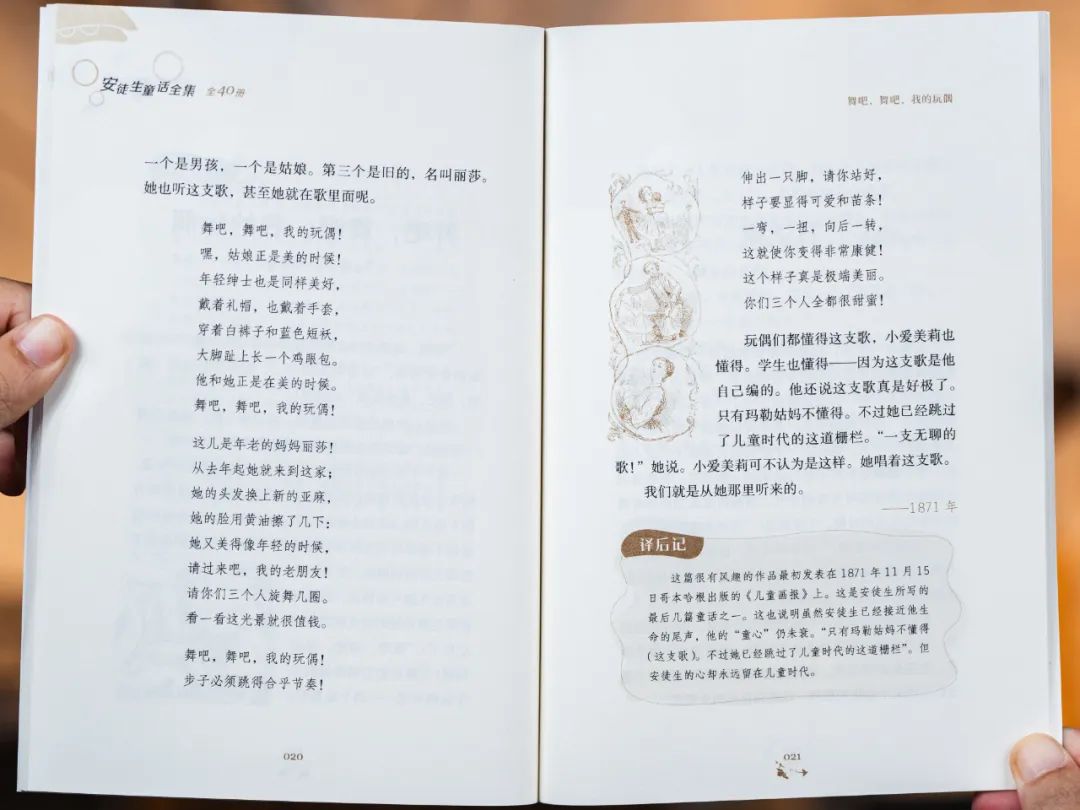 安徒生童话全集 全40册
一个是男孩，一个是姑娘。第三个是旧的，名叫丽莎。
她也听这支歌，甚至她就在歌里面呢。
舞吧，舞吧，我的玩偶！
嘿，姑娘正是美的时候！
年轻绅士也是同样美好，
戴着礼帽，也戴着手套，
穿着白裤子和蓝色短袄，
大脚趾上长一个鸡眼包。
他和她正是在美的时候。
舞吧，舞吧，我的玩偶！
这儿是年老的妈妈丽莎！
从去年起她就来到这家；
她的头发换上新的亚麻，
她的脸用黄油擦了几下：
她又美得像年轻的时候，
请过来吧，我的老朋友！
请你们三个人旋舞几圈。
看一看这光景就很值钱。
舞吧，舞吧，我的玩偶！
步子必须跳得合乎节奏！
020
舞吧，舞吧，我的玩偶
伸出一只脚，请你站好，
样子要显得可爱和苗条！
一弯，一扭，向后一转，
这就使你变得非常康健！
这个样子真是极端美丽。
你们三个人全都很甜蜜！
玩偶们都懂得这支歌，小爱美莉也
懂得。学生也懂得——因为这支歌是他
自己编的。他还说这支歌真是好极了。
只有玛勒姑妈不懂得。不过她已经跳过
了儿童时代的这道栅栏。“一支无聊的
歌！”她说。小爱美莉可不认为是这样。她唱着这支歌。
我们就是从她那里听来的。
——1871 年
译后记
这篇很有风趣的作品最初发表在 1871 年 11 月 15
日哥本哈根出版的《儿童画报》上。这是安徒生所写的
最后几篇童话之一。这也说明虽然安徒生已经接近他生
命的尾声，他的“童心”仍未衰。“只有玛勒姑妈不懂得
（这支歌）。不过她已经跳过了儿童时代的这道栅栏”。但
安徒生的心却永远留在儿童时代。
021